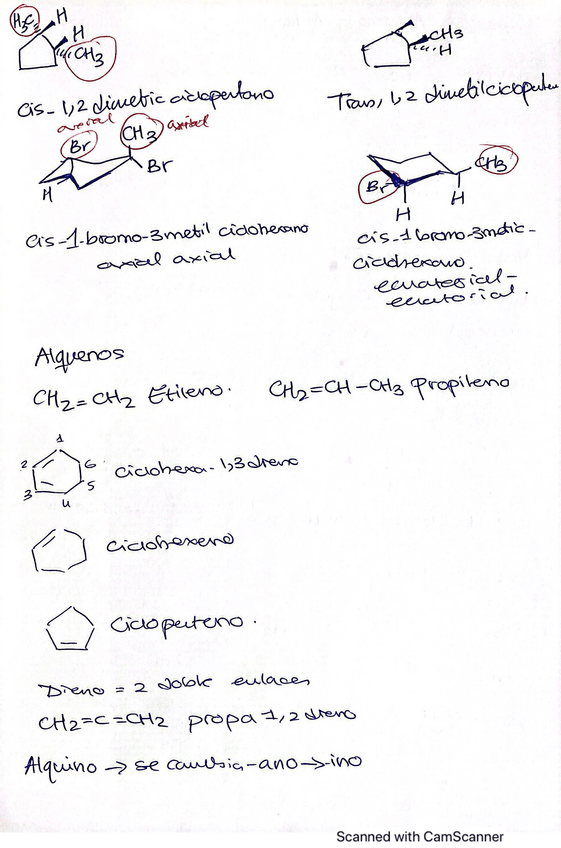 H₃C H
H
CH₃
CH₃
H
cis-1,2 dimetic ciclopentano
Trans, 1,2 dimetilciclopentano
axial
Br CH₃ axial
Br
H
Br CH₃
H H
cis-1-bromo-3metil ciclohexano
axial axial
cis-1 bromo-3metic-
ciclohexano.
ecuatorial-
ecuatorial.
Alquenos
CH₂=CH₂ Etileno. CH₂=CH-CH₃ Propileno
1
2 6
3 5
4
ciclohexa-1,3 dieno
ciclohexeno
Ciclopenteno.
Dieno = 2 doble enlaces
CH₂=C=CH₂ propa 1,2 dieno
Alquino → se cambia -ano → -ino
Scanned with CamScanner